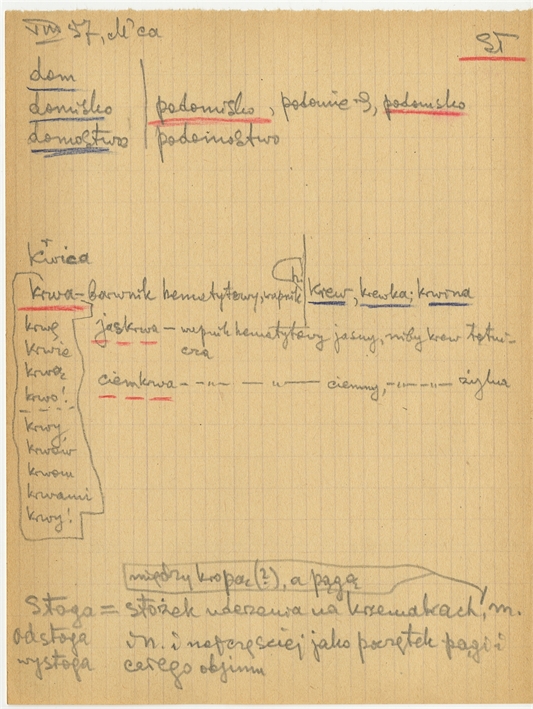 VIII 57, M-ca
ST
dom
domisko | podomisko, podomie -?, podomsko
domostwo | podomostwo
Krwica
krwa = barwnik hematytowy, wapnik | krew, krewka; krwina
krwę jaskrwa – wapnik hematytowy jasny, niby krew tętni-
cza
krwie
krwą ciemkrwa – -„- — „ — ciemny, -„- -„- żylna
krwo!
krwy
krwów
krwom
krwami
krwy!
między kropą (?), a pągą
Stoga = stożek uderzenia na krzemakach, m.
odstoga in. i najczęściej jako początek pągi i
wystoga całego objimu